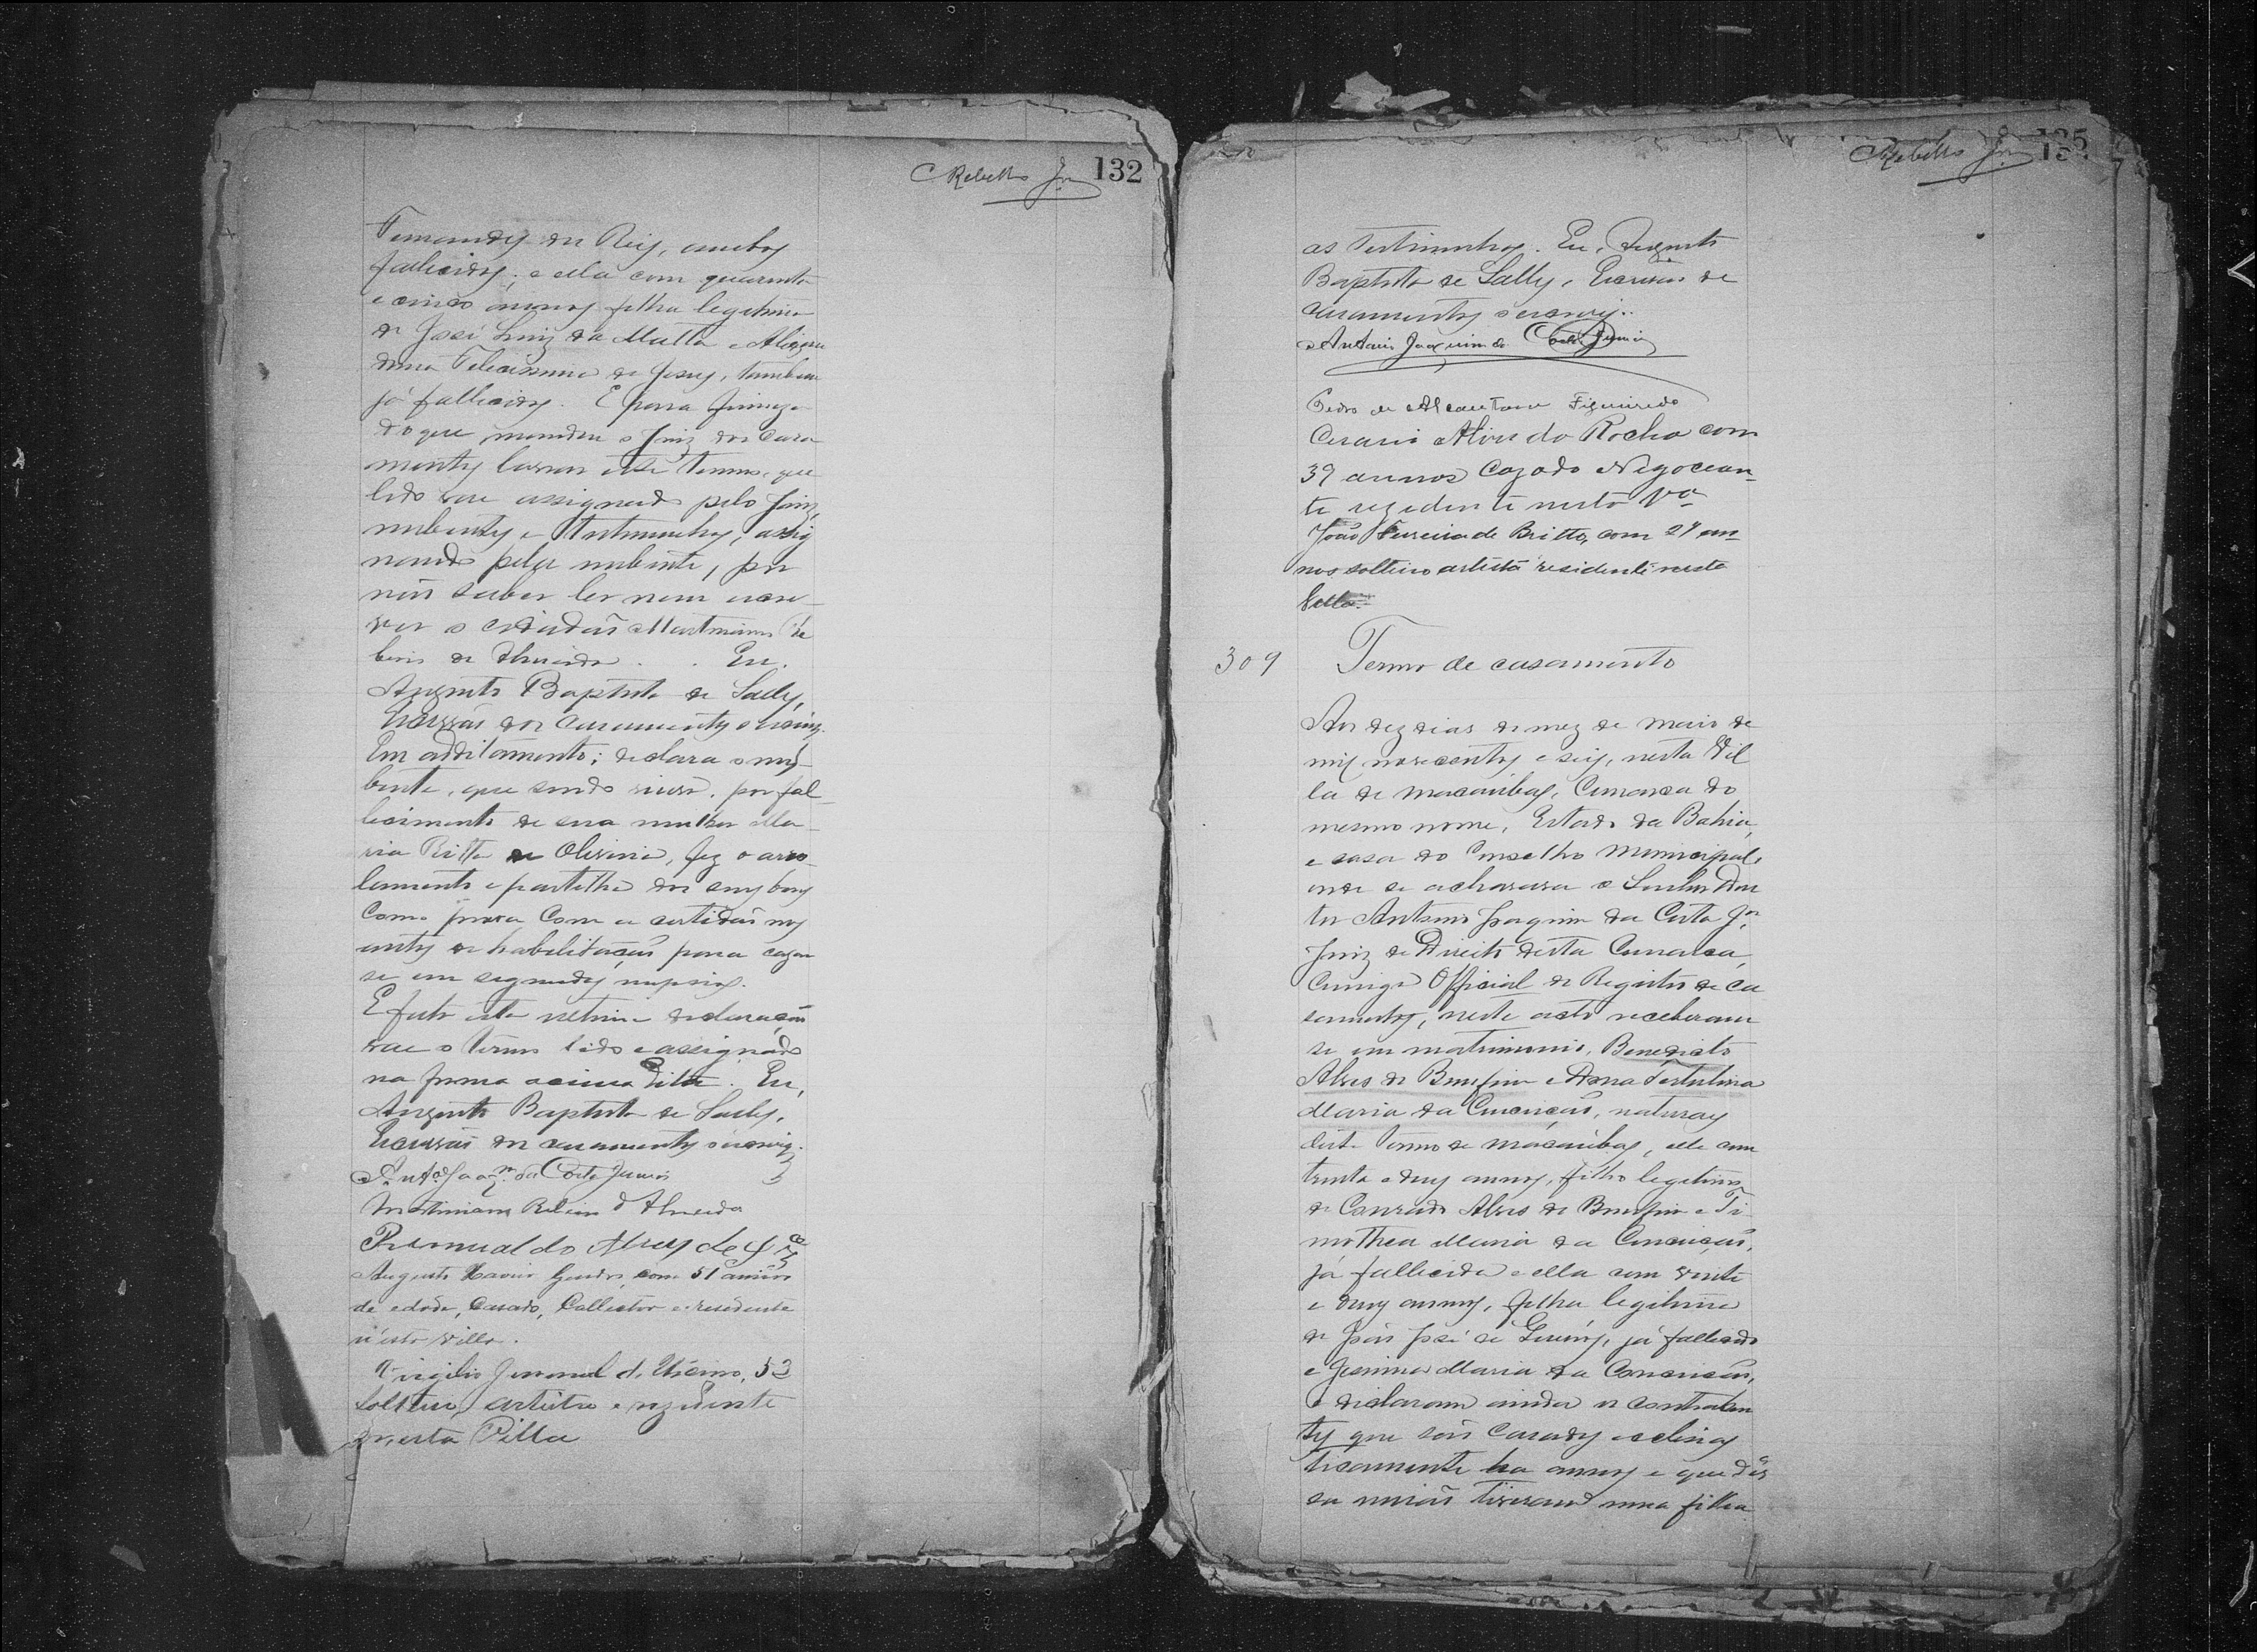 Rebello Jor 132
Fernandes dos Reis, ambos
fallecidos; e ella com quarenta
e cinco annos, filha legitima
de José Luiz da Motta e Alexan
drina Feliciana de Jesus, tambem
já fallecidos. E para
do que mandou o Juiz dos casa
mentos lavrar este termo, que
lido vae assignado pelo Juiz,
nubentes e testemunhas, assig
nando pela nubente, por
não saber ler nem escre-
ver o cidadão Martiniano Ri
beiro de Almeida. Eu.
Augusto Baptista de Sally,
Escrivão dos casamentos o escrevi.
Em additamento; declara o nu-
bente, que sendo viuvo, por fal-
lecimento de sua mulher Ma-
ria Ritta de Oliveira, fez o arro-
lamento e partilha dos seus bens
como prova com a certidão nos
autos de habilitação para cazar
se em segundas nupcias.
E feita esta ultima declaração
vae o termo lido e assignado
na forma acima dita. Eu,
Augusto Baptista de Sally,
Escrivão dos casamentos o escrevi.
Anto Joaqm da Costa Junior
Martiniano Ribeiro d'Almeida
Romualdo Alves de
Augusto Xavier Guedes, com 51 annos
de edade, Casado, Collector e residente
n'esta villa.
Virgilio Juvenal d. 53
Solteiro, artista e rezidente
nesta Villa
Rebello Jor 135
as testemunhas. Eu, Augusto
Baptista de Sally, Escrivão de
casamentos o escrevi.
Antonio Joaquim da Costa Junior
Pedro de Alcantara Figueiredo
Cesario Alves da Rocha com
39 annos Cazado Negocean-
te rezidente nesta Va
João Ferreira de Britto, com 29 an-
nos solteiro artista residente nesta
Villa.
309 Termo de casamento
Aos dez dias do mez de Maio de
mil novecentos e seis, nesta Vil
la de Macaúbas, Comarca do
mesmo nome, Estado da Bahia,
e casa do Conselho Municipal,
onde se achavara o Senhor Dou
tor Antonio Joaquim da Costa Jor
Juiz de Direito desta Comarca,
Comigo Official do Registro de ca
samentos, neste acto receberam
se em matrimonio, Benedicto
Alves do Bomfim e Dona Tertulina
Maria da Conceição, naturaes
deste termo de Macaúbas, elle com
trinta e dous annos, filho legitimo
de Conrado Alves do Bomfim e Ti
mothea Maria da Conceição,
já fallecida e ella com vinte
e dous annos, filha legitima
de João José de já fallecido
e Jesuina Maria da Conceição,
e declaram ainda os contrahen
tes que são Casados ecclesias
ticamente ha annos e que des
sa união tiveram uma filha